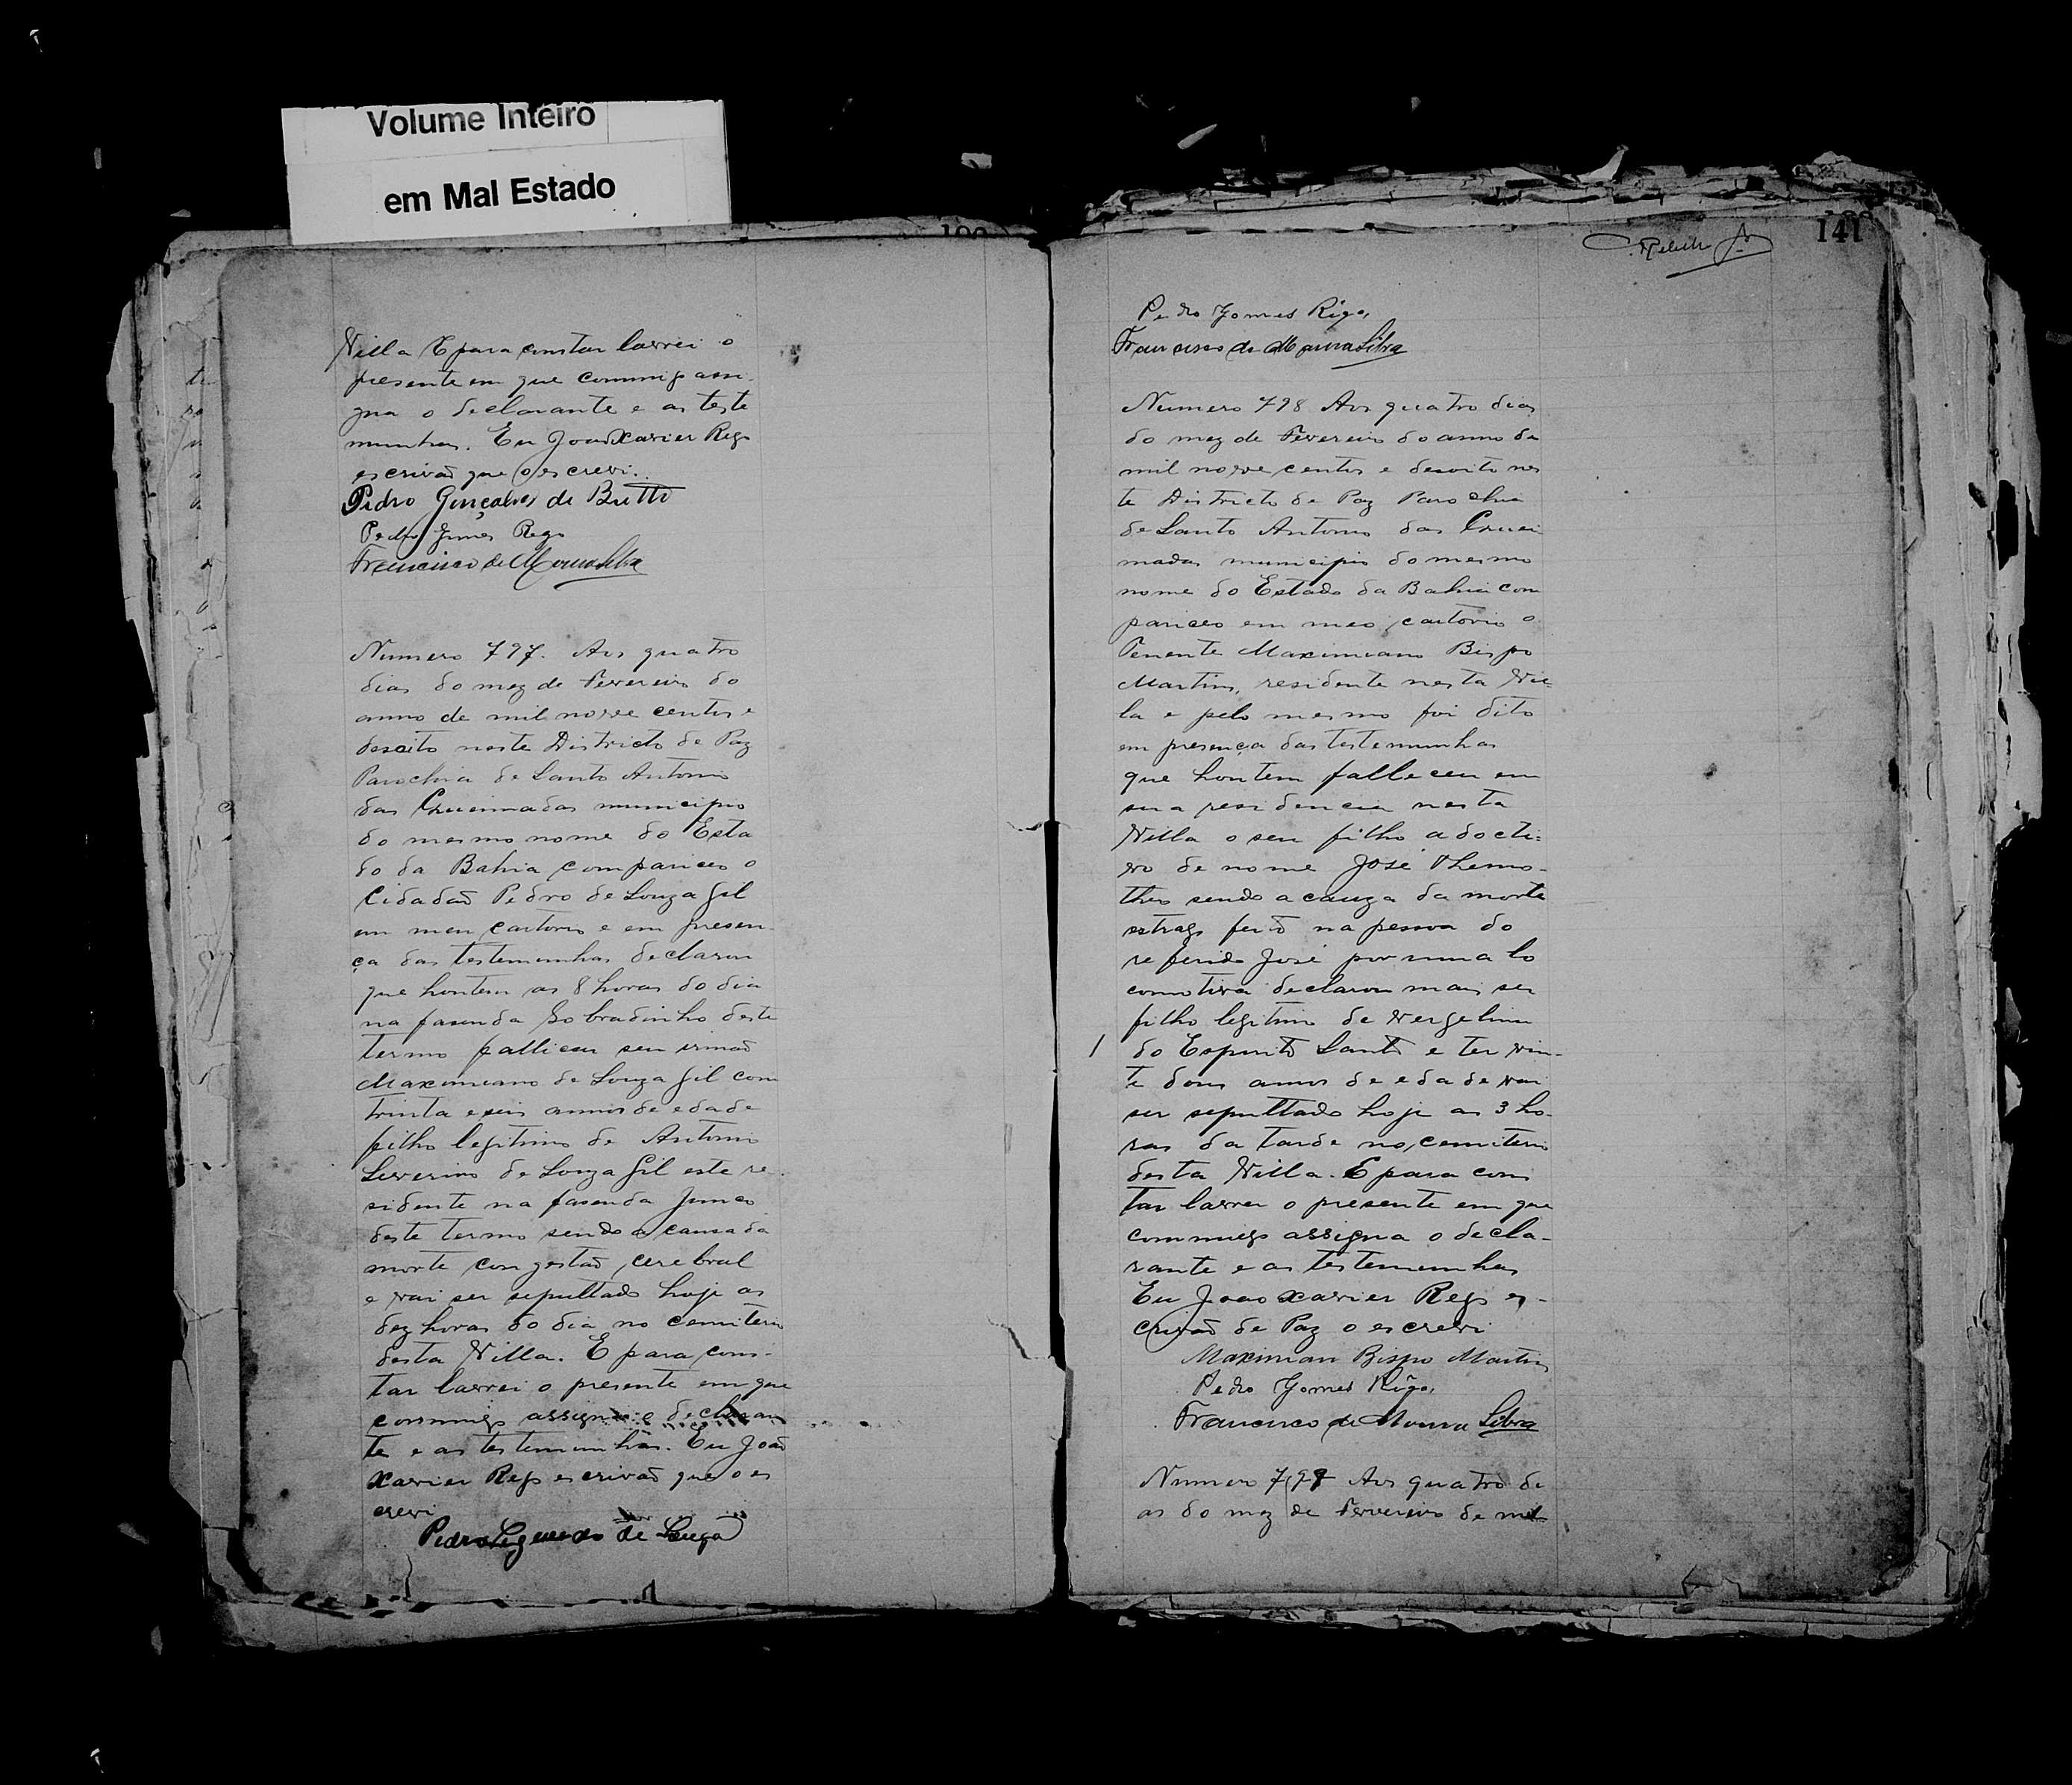 Volume Inteiro
em Mal Estado
Villa E para constar lavrei o
presente em que commigo assi-
gna o declarante e as teste
munhas. Eu João Xavier Rego
escrivão que o escrevi.
Pedro Gonçalves de Britto
Pedro Gomes Rego
Francisco de Moura Silva
Numero 797. Aos quatro
dias do mez de Fevereiro do
anno de mil nove centos e
desoito neste Districto de Paz
Parochia de Santo Antonio
das Queimadas municipio
do mesmo nome do Esta
do da Bahia compariceo o
Cidadão Pedro de Souza Gil
em meu cartorio e em presen
ça das testemunhas declarou
que hontem as 8 horas do dia
na fasenda Sobradinho deste
termo falliceu seu irmão
Maximiano de Souza Gil com
trinta e seis annos de edade
filho legitimo de Antonio
Severino de Souza Gil este re-
sidente na fasenda Junco
deste termo sendo a causa da
morte congestão cerebral
e vai ser sepultado hoje as
dez horas do dia no cemiterio
desta Villa. E para cons-
tar lavrei o presente em que
commigo assigna o declaran
te e as testemunhas. Eu João
Xavier Rego escrivão que o es
crevi
Pedro de Souza
141
Pedro Gomes Rigo,
Francisco de Moura Silva
Numero 798 Aos quatro dias
do mez de Fevereiro do anno de
mil nove centos e desoito nes
te Districto de Paz Parochia
de Santo Antonio das Quei
madas municipio do mesmo
nome do Estado da Bahia com
pariceo em meo cartorio o
Tenente Maximiano Bispo
Martins, residente nesta Vil-
la e pelo mesmo foi dito
em presença das testemunhas
que hontem falleceu em
sua residencia nesta
Villa o seu filho adocti-
vo de nome José Themo-
theo sendo a cauza da morte
estrago feito na pessoa do
referido José por uma lo
comotiva declarou mais ser
filho legitimo de Vergelina
do Espirito Santo e ter vin-
te dous annos de edade vai
ser sepultado hoje as 3 ho-
ras da tarde no cemiterio
desta Villa. E para cons
tar lavrei o presente em que
commigo assigna o decla-
rante e as testemunhas
Eu Joao Xavier Rego es-
crivão de Paz o escrevi
Maximian Bispo Martins
Pedro Gomes Rigo,
Francisco de Moura Silva
Numero 799 Aos quatro di
as do mez de Fevereiro de mil